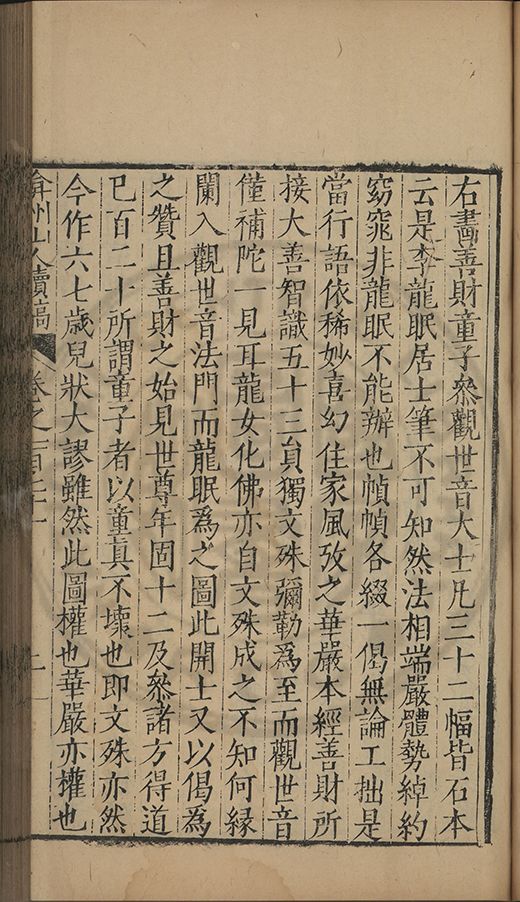 右畵善財童子叅觀世音大士凡三十二幅皆石本
云是李龍眠居士筆不可知然法相端嚴體勢綽約
窈窕非龍眠不能辦也幀幀各綴一偈無論工拙是
當行語依稀妙喜幻住家風攷之華嚴本經善財所
接大善智識五十三員獨文殊彌勒爲至而觀世音
僅補陀一見耳龍女化佛亦自文殊成之不知何緣
闌入觀世音法門而龍眠爲之圖此開士又以偈爲
之贊且善財之始見世尊年固十二及叅諸方得道
已百二十所謂童子者以童眞不壞也即文殊亦然
今作六七歲兒狀大謬雖然此圖權也華嚴亦權也
弇州山人續稿 卷之一百